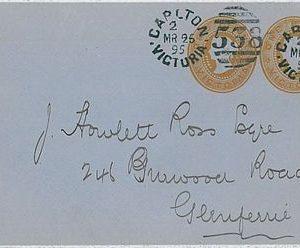 CARLTON
2
MR 25
95
VICTORIA
538
CAR
J. Howlett Ross Esqre
246 Burwood Road
Glenferrie